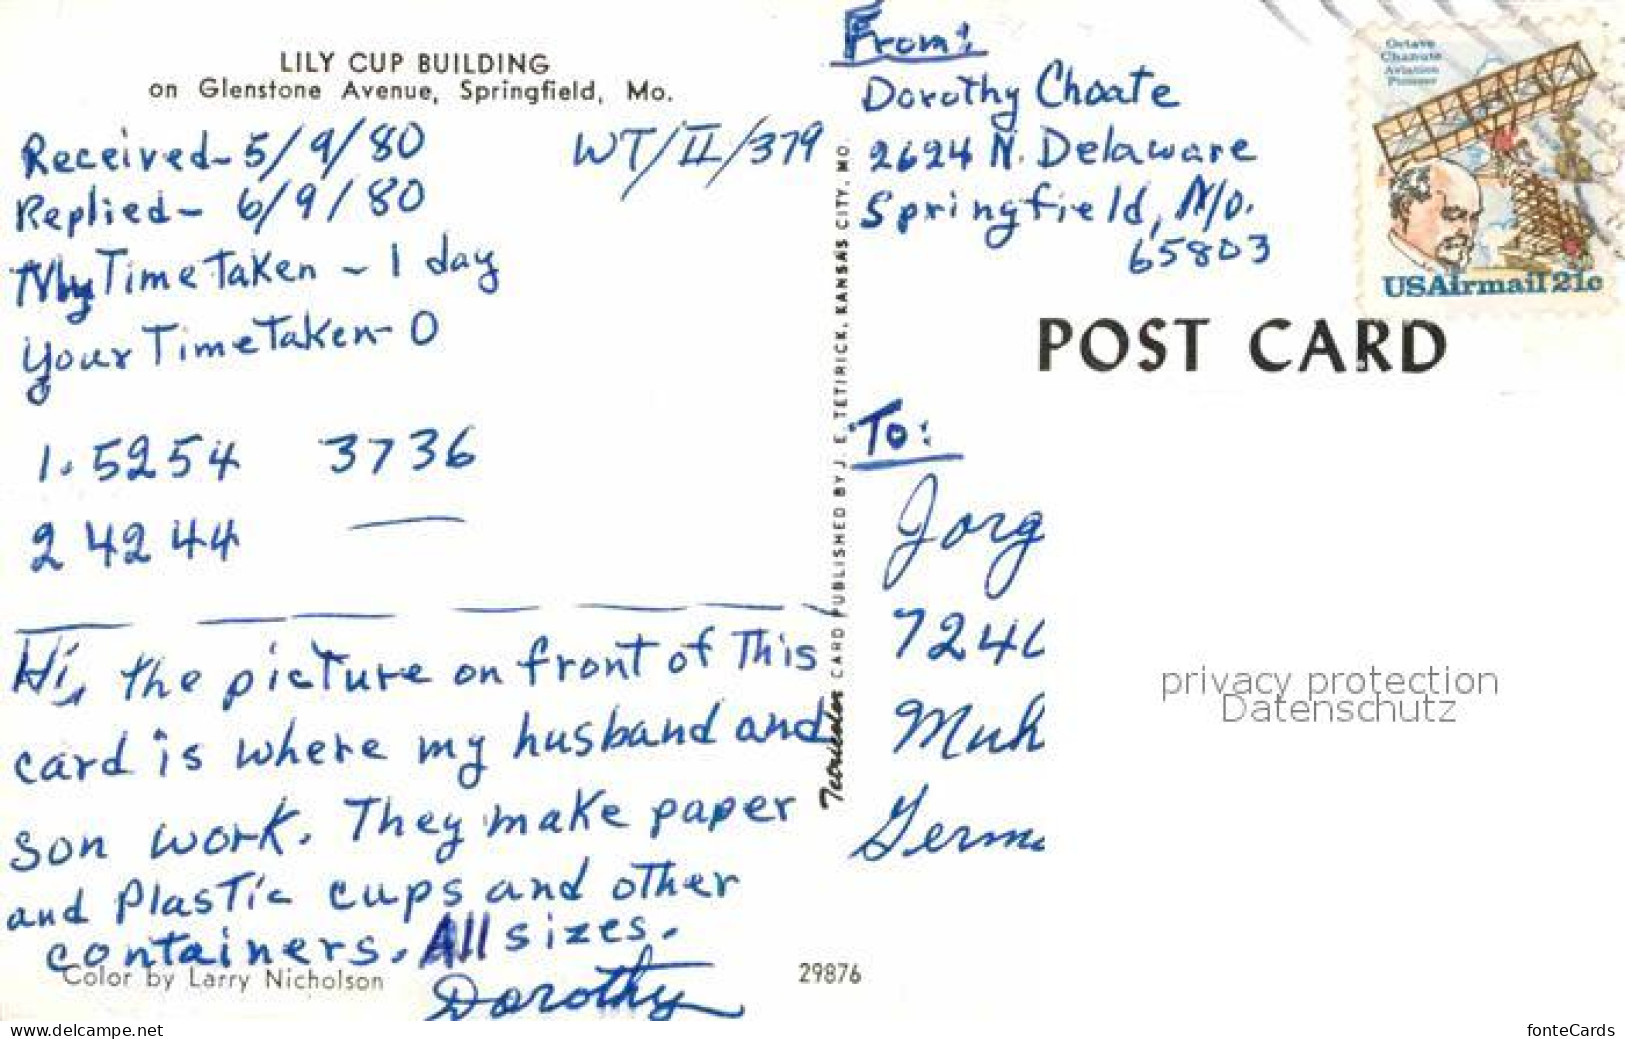 LILY CUP BUILDING
on Glenstone Avenue, Springfield, Mo.
Received- 5/9/80 WT/II/379
Replied- 6/9/80
My Time Taken - 1 day
Your Time Taken- 0
1. 5254 3736
2 4244 —
Hi, the picture on front of This
card is where my husband and
son work. They make paper
and Plastic cups and other
containers. All sizes.
Dorothy
Color by Larry Nicholson
29876
CARD PUBLISHED BY J. E. TETIRICK, KANSAS CITY, MO.
From:
Dorothy Choate
2624 N. Delaware
Springfield, Mo.
65803
Octave
Chanute
Aviation
Pioneer
USAirmail 21c
POST CARD
To:
Jorg
724
Muh
Germ
privacy protection
Datenschutz
www.delcampe.net
fonteCards